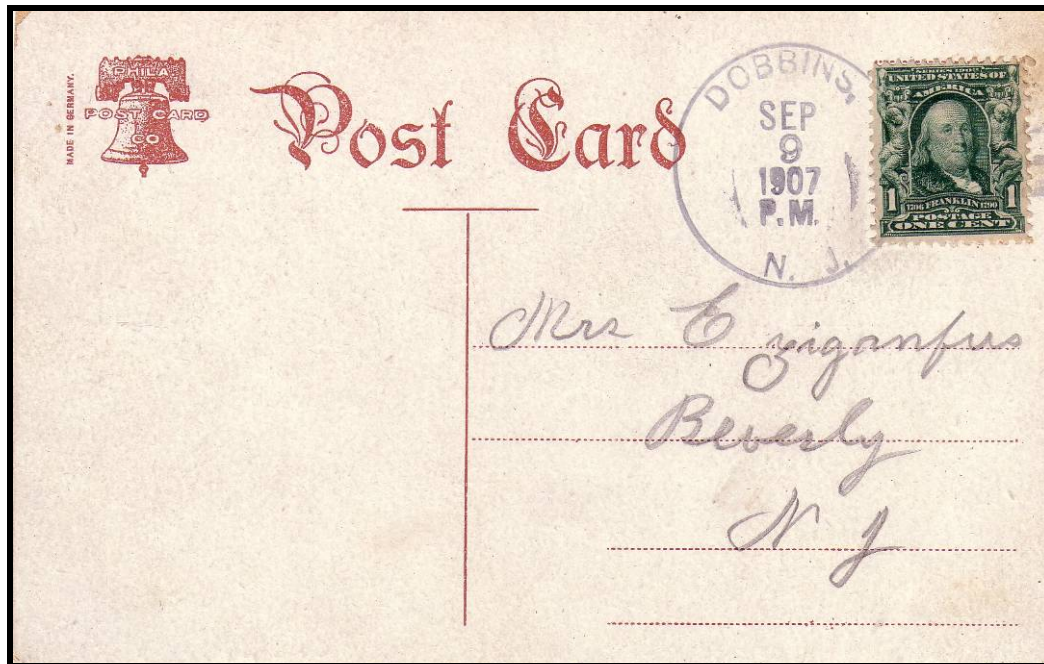 MADE IN GERMANY.
PHILA
POST CARD
CO
Post Card
DOBBINS,
SEP
9
1907
P.M.
N. J.
SERIES 1902
UNITED STATES OF
AMERICA
1 1
1706 FRANKLIN 1790
POSTAGE
ONE CENT
Mrs E ziganfus
Beverly
N J